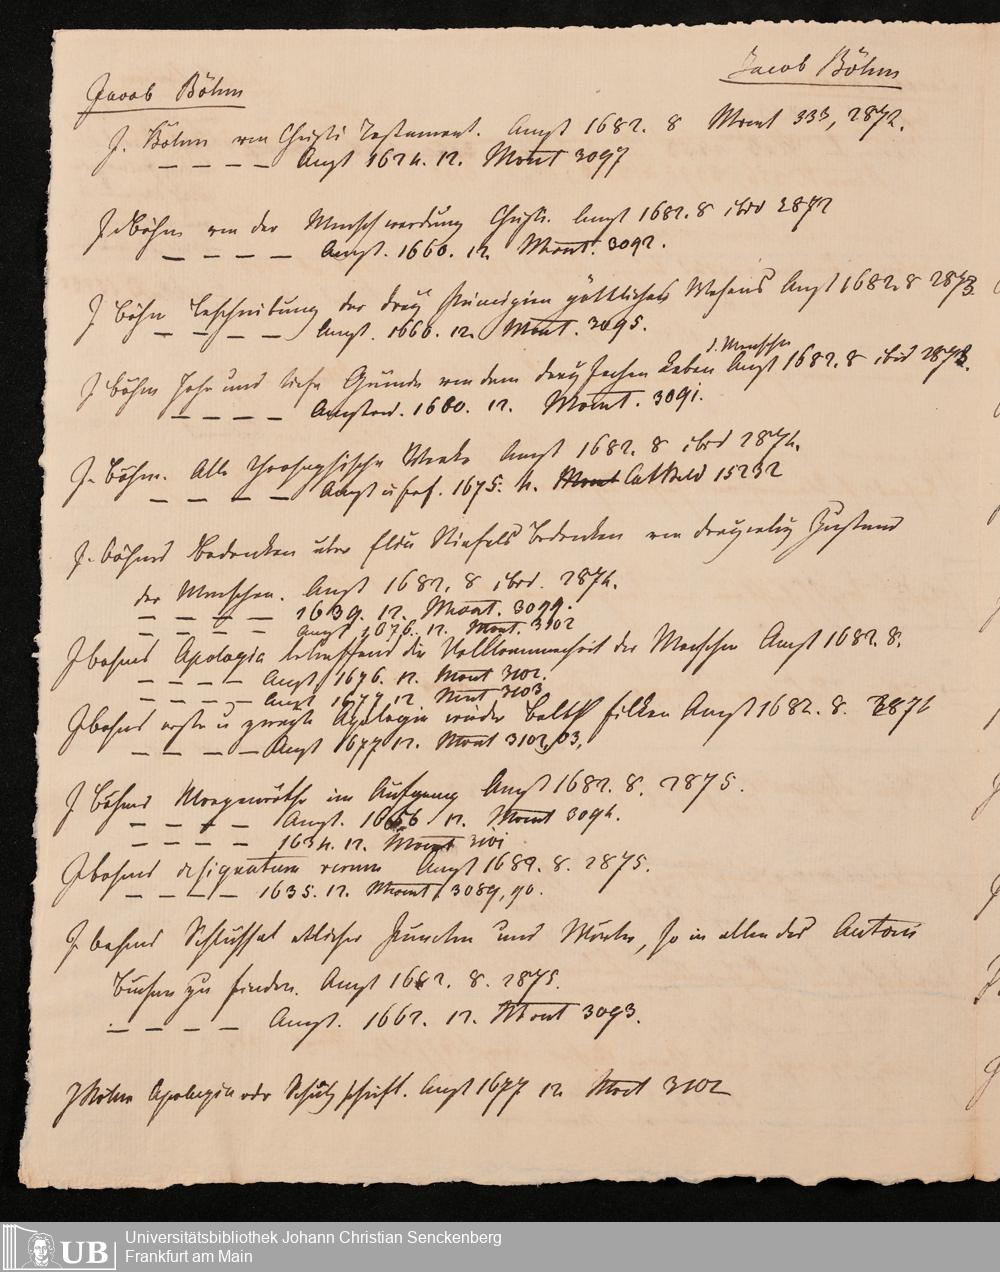 Jacob Böhm
Jacob Böhm
J. Böhm von Christi Testament. Amst 1682. 8 Mont 333, 2872.
— — — — Amst 1624. 12. Mont 3097
J. Böhm von der Menschwerdung Christi. Amst 1682. 8 ibid 2872
— — — — Amst. 1660. 12. Mont. 3092.
J Böhm Beschreibung der drey Principien göttliches Wesens Amst 1682. 8 2873
— — — — Amst. 1660. 12. Mont. 3095.
d. Menschen
J Böhm hohe und tiefe Gründe von dem dreyfachen Leben Amst 1682. 8 ibid 2873.
— — — — Amsterd. 1660. 12. Mont. 3091.
J. Böhm. Alle Theosophische Werke Amst 1682. 8 ibid 2874.
— — — — Amst u 1675. 4. Mont Cat 15232
J. Böhms Bedenken über Stiefels Bedenken von Zustand
der Menschen. Amst 1682. 8 ibid. 2874.
— — — — 1639. 12. Mont. 3099.
— — — — Amst 1676. 12. Mont. 3102
J Böhms Apologia betreffend die Vollkommenheit des Menschen Amst 1682. 8.
— — — — Amst 1676. 12. Mont 3102.
— — — — Amst 1677 12 Mont 3103
J Böhms erste u zweyte Apologia wieder Balth Tilken Amst 1682. 8. 2874
— — — — Amst 1677 12. Mont 3102, 03,
J Böhms Morgenröthe im Aufgang Amst 1682. 8. 2875.
— — — — Amst. 1656 12. Mont 3094.
— — — — 1634. 12. Mont 3101
J Böhms de signatura rerum Amst 1682. 8. 2875.
— — — — 1635. 12. Mont 3089, 90.
J Böhms Schlüssel etlicher Puncten und Wörter, so in allen des Autoris
Büchern zu finden. Amst 1682. 8. 2875.
— — — — Amst. 1662. 12. Mont 3093.
J Böhm Apologia oder Schutzschrift. Amst 1677 12 Mont 3102
UB
Universitätsbibliothek Johann Christian Senckenberg
Frankfurt am Main